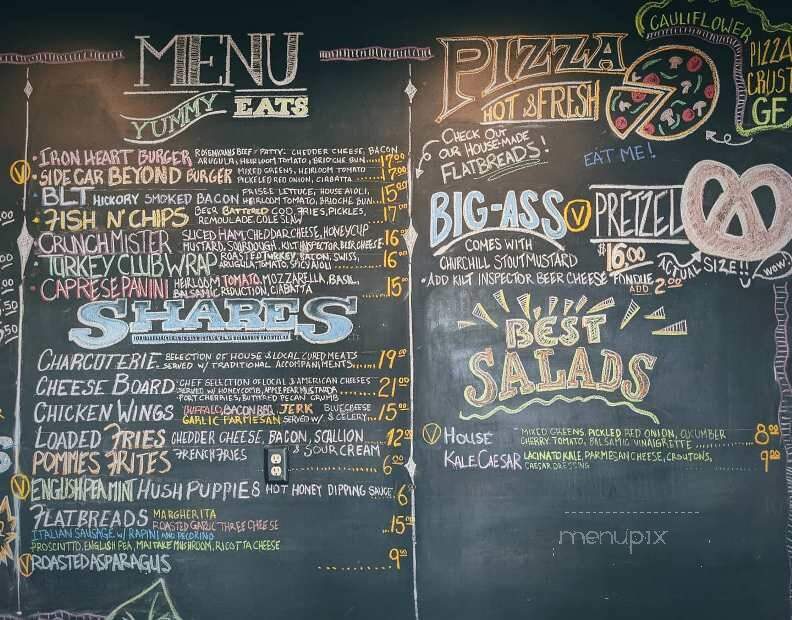 MENU
YUMMY EATS
V IRON HEART BURGER ROSENKRANS BEEF PATTY, CHEDDER CHEESE, BACON, ARUGULA, HEIRLOOM TOMATO, BRIOCHE BUN....17.00
SIDE CAR BEYOND BURGER MIXED GREENS, HEIRLOOM TOMATO PICKLED RED ONION, CIABATTA ....17.00
BLT HICKORY SMOKED BACON FRISEE LETTUCE, HOUSE AIOLI, HEIRLOOM TOMATO, BRIOCHE BUN....15.00
FISH N' CHIPS BEER BATTERED COD, FRIES, PICKLES, REMOULADE, COLE SLAW ....17.00
CRUNCH MISTER SLICED HAM, CHEDDAR CHEESE, HONEYCUP MUSTARD, SOURDOUGH, KILT INSPECTOR BEER CHEESE 16.00
TURKEY CLUB WRAP ROASTED TURKEY, BACON, SWISS, ARUGULA, TOMATO, AIOLI ....16.00
CAPRESE PANINI HEIRLOOM TOMATO, MOZZARELLA, BASIL, BALSAMIC REDUCTION, CIABATTA ....15.00
SHARES
CHARCOTERIE SELECTION OF HOUSE & LOCAL CURED MEATS SERVED W/ TRADITIONAL ACCOMPANIMENTS....19.00
CHEESE BOARD CHEF SELECTION OF LOCAL & AMERICAN CHEESES SERVED W/ HONEYCOMB, APPLE PEAR MUSTARDA PORT CHERRIES, BUTTERED PECAN CRUMB 21.00
CHICKEN WINGS BUFFALO, BACON BBQ, JERK GARLIC PARMESAN SERVED W/ BLUE CHEESE & CELERY...15.00
LOADED FRIES CHEDDER CHEESE, BACON, SCALLION & SOUR CREAM 12.00
POMMES FRITES FRENCH FRIES 6.00
V ENGLISH PEA MINT HUSH PUPPIES HOT HONEY DIPPING SAUCE. 6.00
FLATBREADS MARGHERITA
ROASTED GARLIC THREE CHEESE
ITALIAN SAUSAGE W/ RAPINI AND PECORINO ....15.00
PROSCIUTTO, ENGLISH PEA, MAITAKE MUSHROOM, RICOTTA CHEESE
V ROASTED ASPARAGUS ....... 9.00
PIZZA
HOT & FRESH
CAULIFLOWER PIZZA CRUST GF
CHECK OUT OUR HOUSE-MADE FLATBREADS!
EAT ME!
BIG-ASS V PRETZEL
COMES WITH CHURCHILL STOUT MUSTARD $16.00
ACTUAL SIZE!! WOW!
• ADD KILT INSPECTOR BEER CHEESE FONDUE ADD 2.00
BEST SALADS
V HOUSE MIXED GREENS, PICKLED RED ONION, CUCUMBER CHERRY TOMATO, BALSAMIC VINAIGRETTE ........ 8.00
KALE CAESAR LACINATO KALE, PARMESAN CHEESE, CROUTONS, CAESAR DRESSING ........ 9.00
menupix